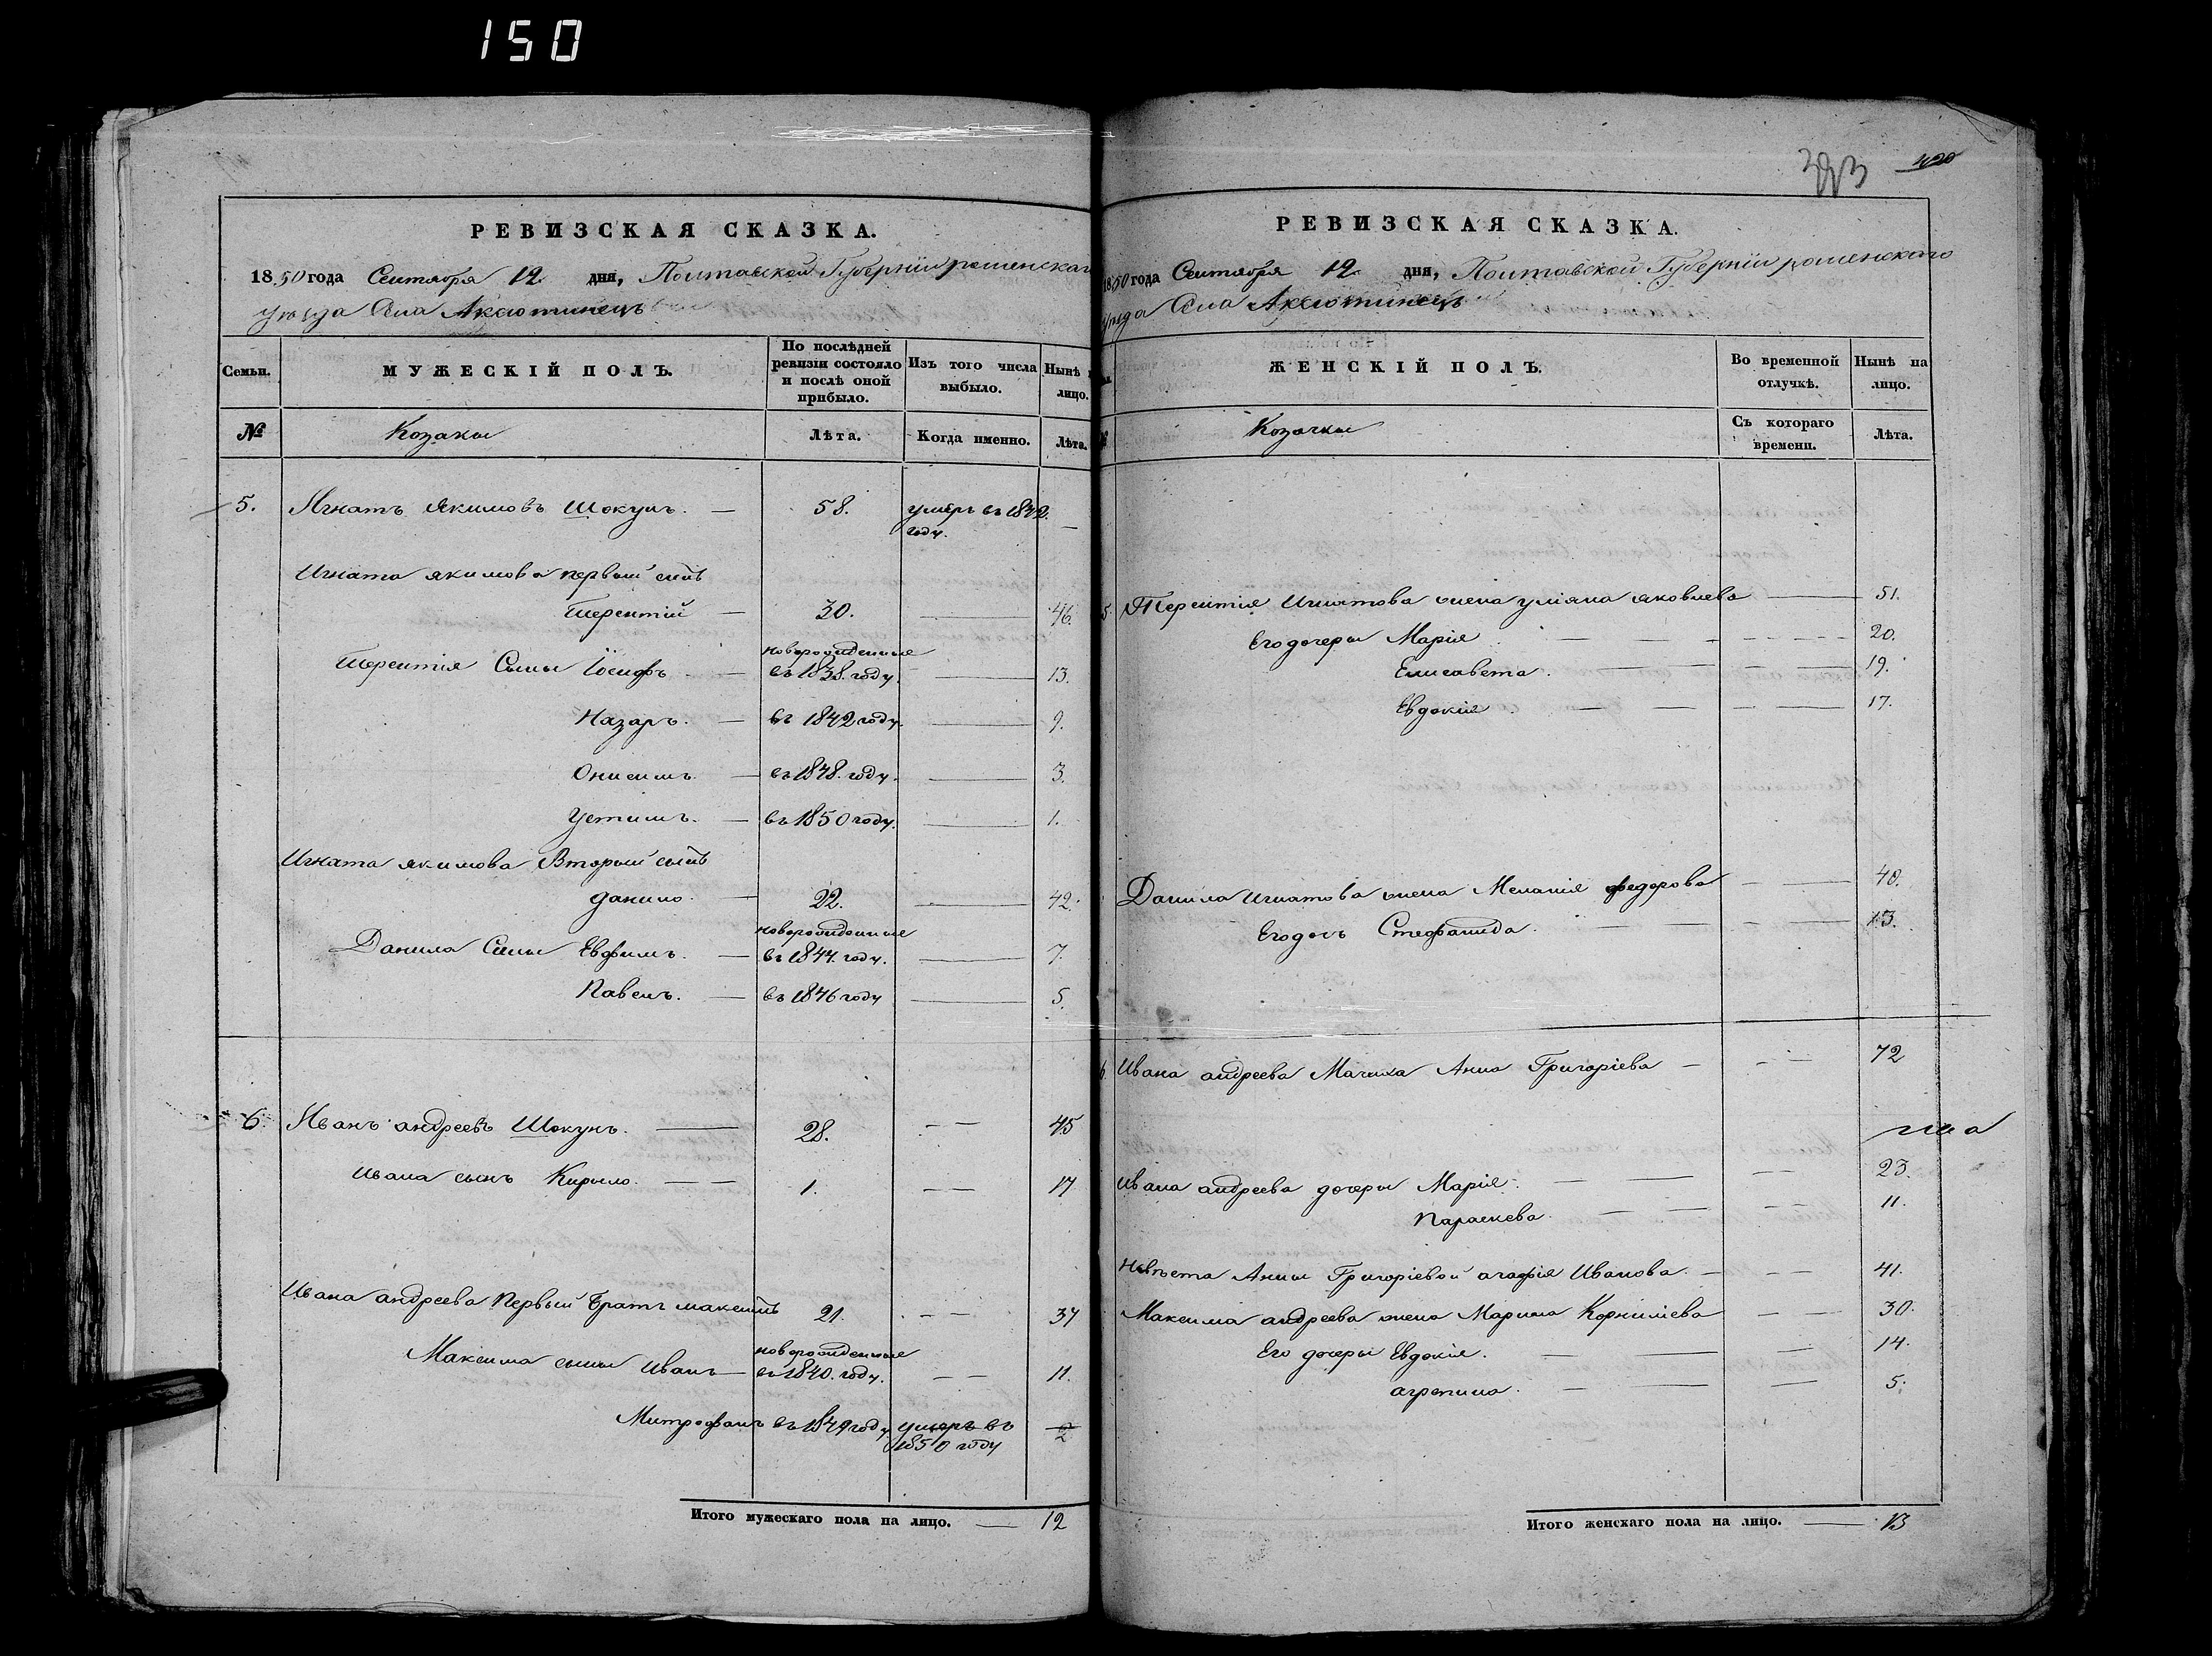 150
РЕВИЗСКАЯ СКАЗКА.
1850 года Сентября 12. дня, Полтавской Губерніи роменскаго
уѣзда Села Аксютинецъ
Семьи.
МУЖЕСКІЙ ПОЛЪ.
По послѣдней ревизіи состояло и послѣ оной прибыло.
Изъ того числа выбыло.
Нынѣ на лицо.
№
Козаки
Лѣта.
Когда именно.
Лѣта.
5. Игнатъ Якимовъ Шокунъ. — 58. умеръ въ 1842. —
году.
Игната якимова первый сынъ
Терентій — 30. — 46.
новорожденные
Терентія Сыны Іосифъ — въ 1838. году. — 13.
Назаръ. — въ 1842 году. — 9.
Онисимъ. — въ 1848. году. — 3.
Устимъ. — въ 1850 году. — 1.
Игната якимова Вторый сынъ
данило. — 22. — 42.
новорожденные
Данила Сыны Евфимъ. — въ 1844. году. — 7.
Павелъ. — въ 1846 году — 5.
6. Иванъ андреевъ Шокунъ. — 28. — — 45
Ивана сынъ Кирило. — — 1. — — 17
Ивана андреева первый братъ максимъ 21. — — 37
новорожденные
Максима сыны Иванъ — въ 1840. году. — — 11.
Митрофанъ въ 1849 году умеръ въ 2
1850 году
Итого мужескаго пола на лицо. — 12
420
РЕВИЗСКАЯ СКАЗКА.
1850 года Сентября 12. дня, Полтавской Губерніи роменскаго
уѣзда Села Аксютинецъ
ЖЕНСКІЙ ПОЛЪ.
Во временной отлучкѣ.
Нынѣ на лицо.
Козачки
Съ котораго времени.
Лѣта.
5. Терентія Игнатова жена уліяна яковлева — 51.
Его дочери Марія — 20.
Елисавета. — 19.
Евдокія — 17.
Данила игнатова жена Меланія федорова — 40.
Его дочь Стефанида. — 13.
6. Ивана андреева Мачиха Анна Григоріева — 72
Ивана андреева дочери Марія. — 23.
Параскева. — 11.
Невѣста Анны Григоріевой агафія Иванова. — 41.
Максима андреева жена Марина Корниліева — 30.
Его дочери Евдокія. — 14.
агрепина. — 5.
Итого женскаго пола на лицо. — 13